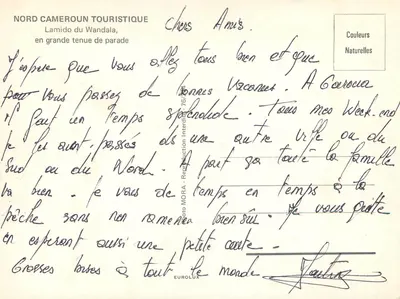 NORD CAMEROUN TOURISTIQUE
Lamido du Wandala,
en grande tenue de parade
Couleurs
Naturelles
Chers Amis.
J'espère que vous allez tous bien et que
pour vous passez de bonnes vacances. A Garoua
il fait un temps splendide. Tous mes Week-end
je les ai passés ds une autre ville ou du
Sud ou du Nord. A part ça toute la famille
va bien. je vais de temps en temps à la
pêche sans rien ramener bien sûr. Je vous quitte
en espérant aussi une petite carte.
Grosses bises à tout le monde
EUROLUX